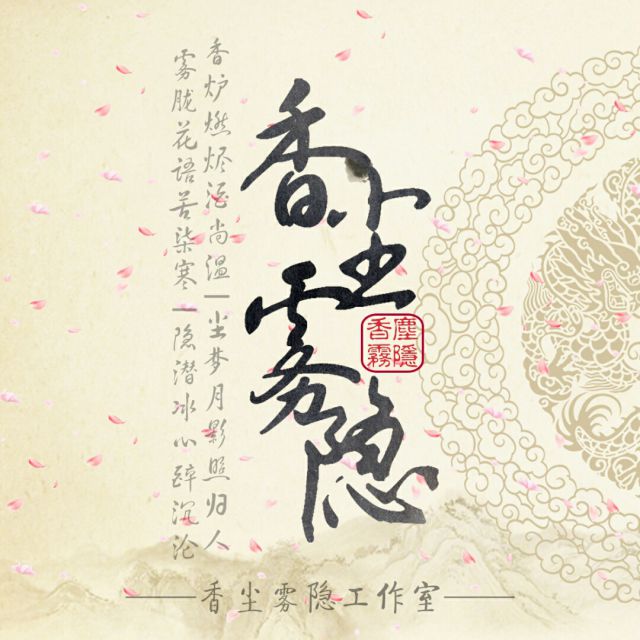 香炉燃烬酒尚温｜尘梦月影照归人
雾胧花语苦柒寒｜隐潜冰心醉沉沦
香尘雾隐
香塵霧隱
香尘雾隐工作室